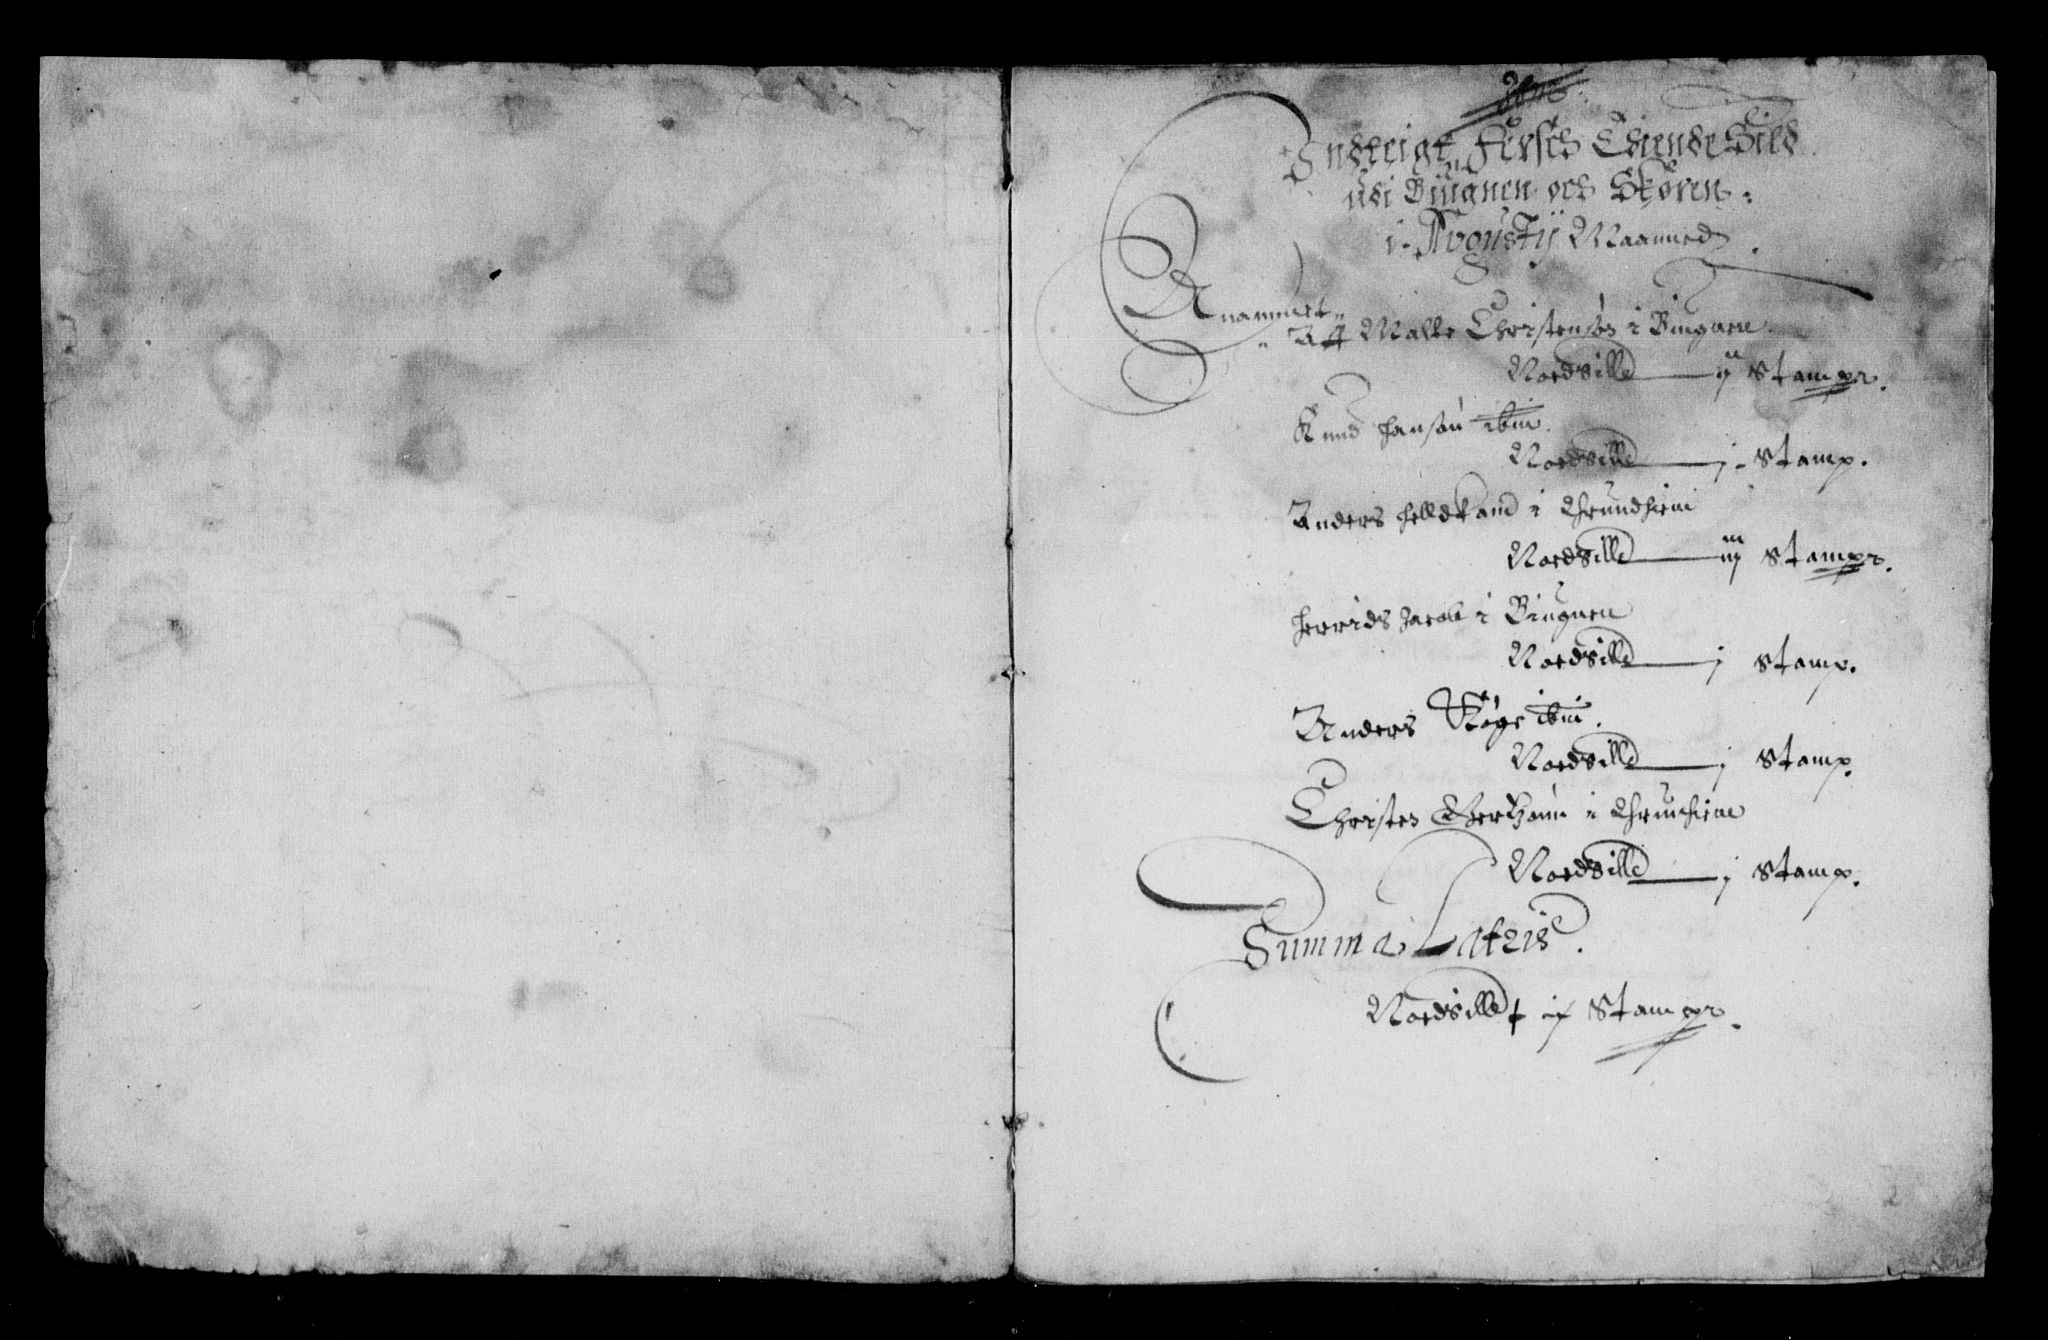 Indteigt Fersch Thiende Sild
udi Biugnen och Skøren:
i Avgusty Maanned
Anammet
Aff Malte Christensøn i Biugnen
Nordsilld ij Stampr.
Knud Hansøn ibm.
Nordsilld j Stamp.
Anders Helldkand i Thrundhiem
Nordsilld iij Stampr.
Herrids Jacob i Biugnen
Nordsilld j Stamp.
Anders Køge ibm.
Nordsilld j Stamp.
Christen i Thrundhiem
Nordsilld j Stamp.
Summa Lateris.
Nordsilld ix Stampr.
2